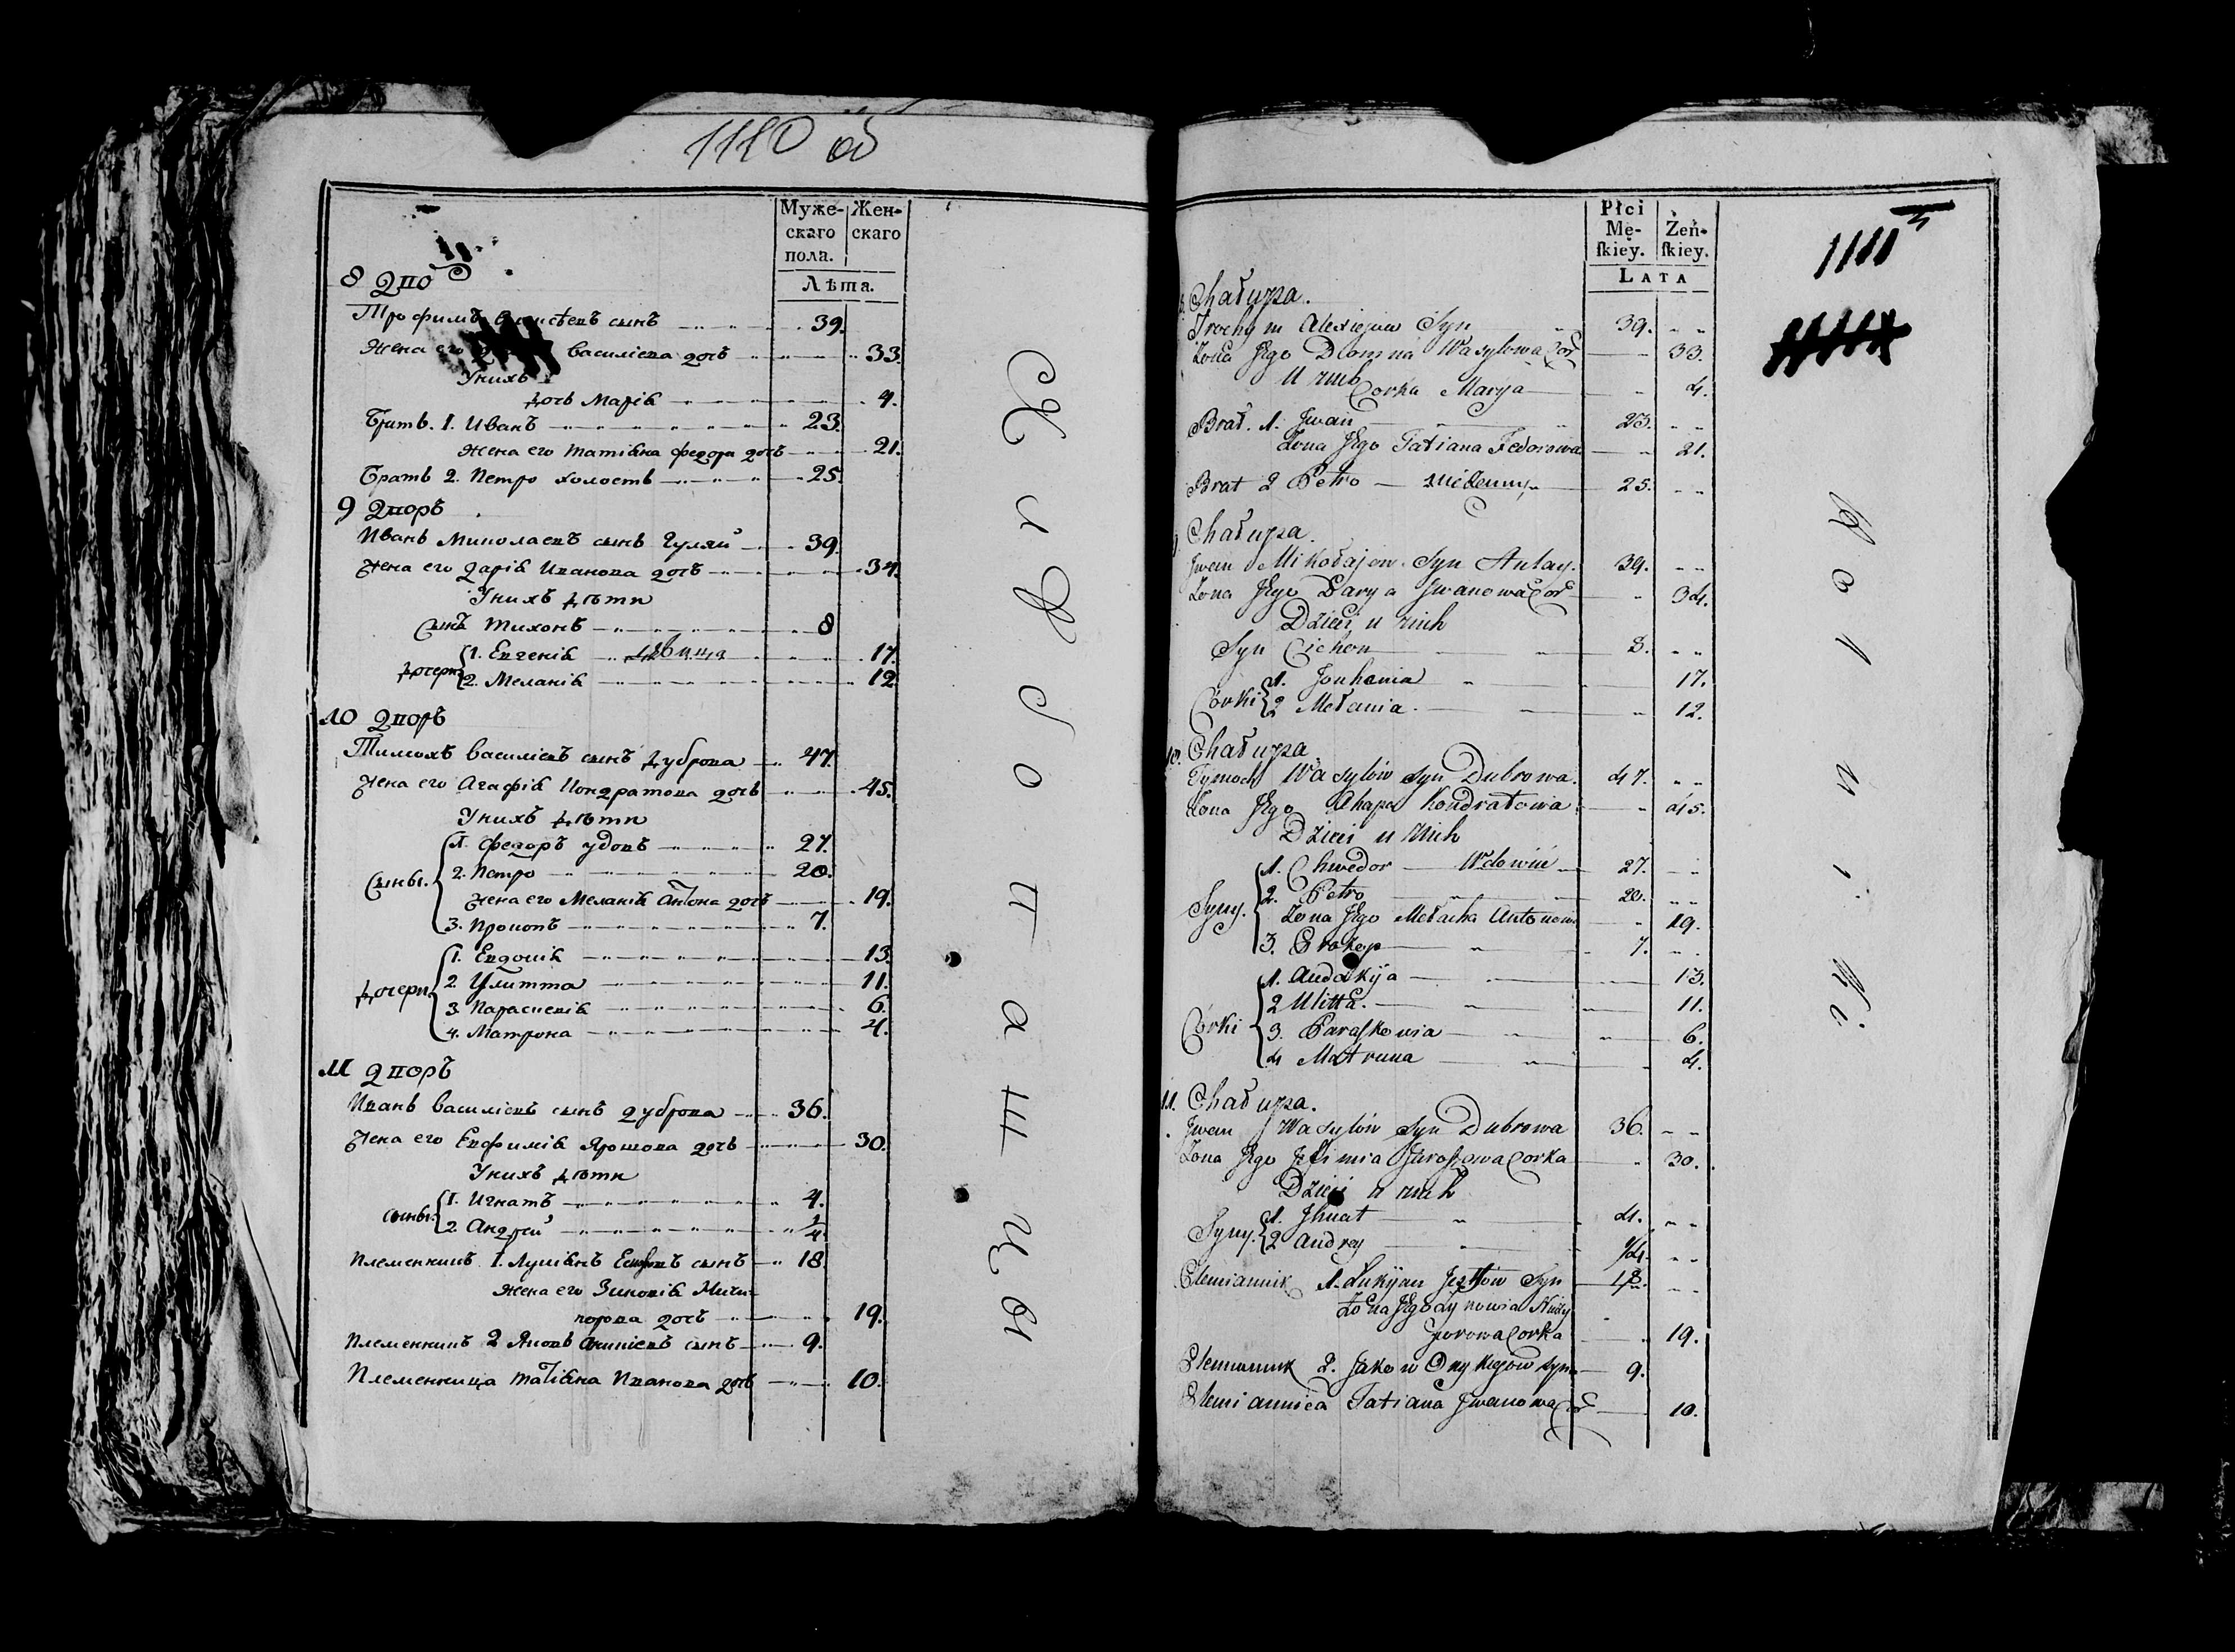 1110 об
Муже-
скаго
пола.
Жен-
скаго
Лѣта.
8 Дво
Трофимъ сынъ 39.
Жена его василіева дочь 33.
У нихъ
дочь Марія 4.
Братъ. 1. Иванъ 23.
жена его татіана федора дочь 21.
Братъ 2. Петро холостъ 25.
9 Дворъ
Иванъ Миколаевъ сынъ Гуляй 39.
Жена его дарія Иванова дочь 34.
У нихъ дѣти
Сынъ Тихонъ 8
дочери
1. Евгенія дѣвица 17.
2. Меланія 12
10 дворъ
Тимохъ василіевъ сынъ дуброва 47.
Жена его Агафія Кондратова дочь 45.
У нихъ дѣти
Сыны.
1. федоръ удовъ 27.
2. Петро 20.
Жена его Меланія Антона дочь 19.
3. Прокопъ 7.
дочери
1. Евдокія 13.
2 Улитта 11.
3. Парасковія 6.
4. Матрона 4.
11 дворъ
Иванъ василіевъ сынъ дуброва 36.
Жена его Евфимія Ярошова дочь 30.
У нихъ дѣти
сыны.
1. Игнатъ 4.
2. Андрей 1/4
племенникъ 1. Лукіянъ сынъ 18
жена его Зиновія Ничи-
порова дочь 19.
племенникъ 2 Яковъ сынъ 9.
Племенница татіана Иванова дочь 10.
Хи Ѳ о п а ш ц ы
Płci
Mę-
ſkiey.
Żeń-
ſkiey.
LATA
1111
8. Chałupa.
Trochym Alexiejew Syn 39.
Żona Jego Domna Wasylowa Cor 33.
U nich Corka Marya 4.
Brat. 1. Jwan 23.
Żona Jego Tatiana Fedorowa 21.
Brat 2 Petro 25.
9. Chałupa.
Jwan Mikołajow Syn 39.
Żona Jego Darya Jwanowa Cor 34.
Dzieci u nich
Syn Cichon 8.
Córki
1. Jouhenia 17.
2 Mełania. 12.
10. Chałupa
Tymoch Wasylów syn Dubrowa. 47.
Żona Jego Ahapa Kondratowa 45.
Dzieci u nich
Syny.
1. Chwedor Wdowiec 27.
2. Petro 20.
Żona Jego Mełacha Antonowa 19.
3. Prokop 7.
Córki
1. Audokija 13.
2 Ulitta. 11.
3. Paraſkowia 6.
4 Matruna 4.
11. Chałupa.
Jwan Wasylów Syn Dubrowa 36.
Żona Jego Jefimia Jaroſzowa Corka 30.
Dzieci u nich
Syny.
1. Jhnat 4.
2 Andrey 1/4.
Plemiannik 1. Łukijan Syn 18.
Żona Jego Zynowia Niczy
porowa Corka 19.
Plemiannik 2. Jakow syn 9.
Plemiannica Tatiana Jwanowa Cor 10.